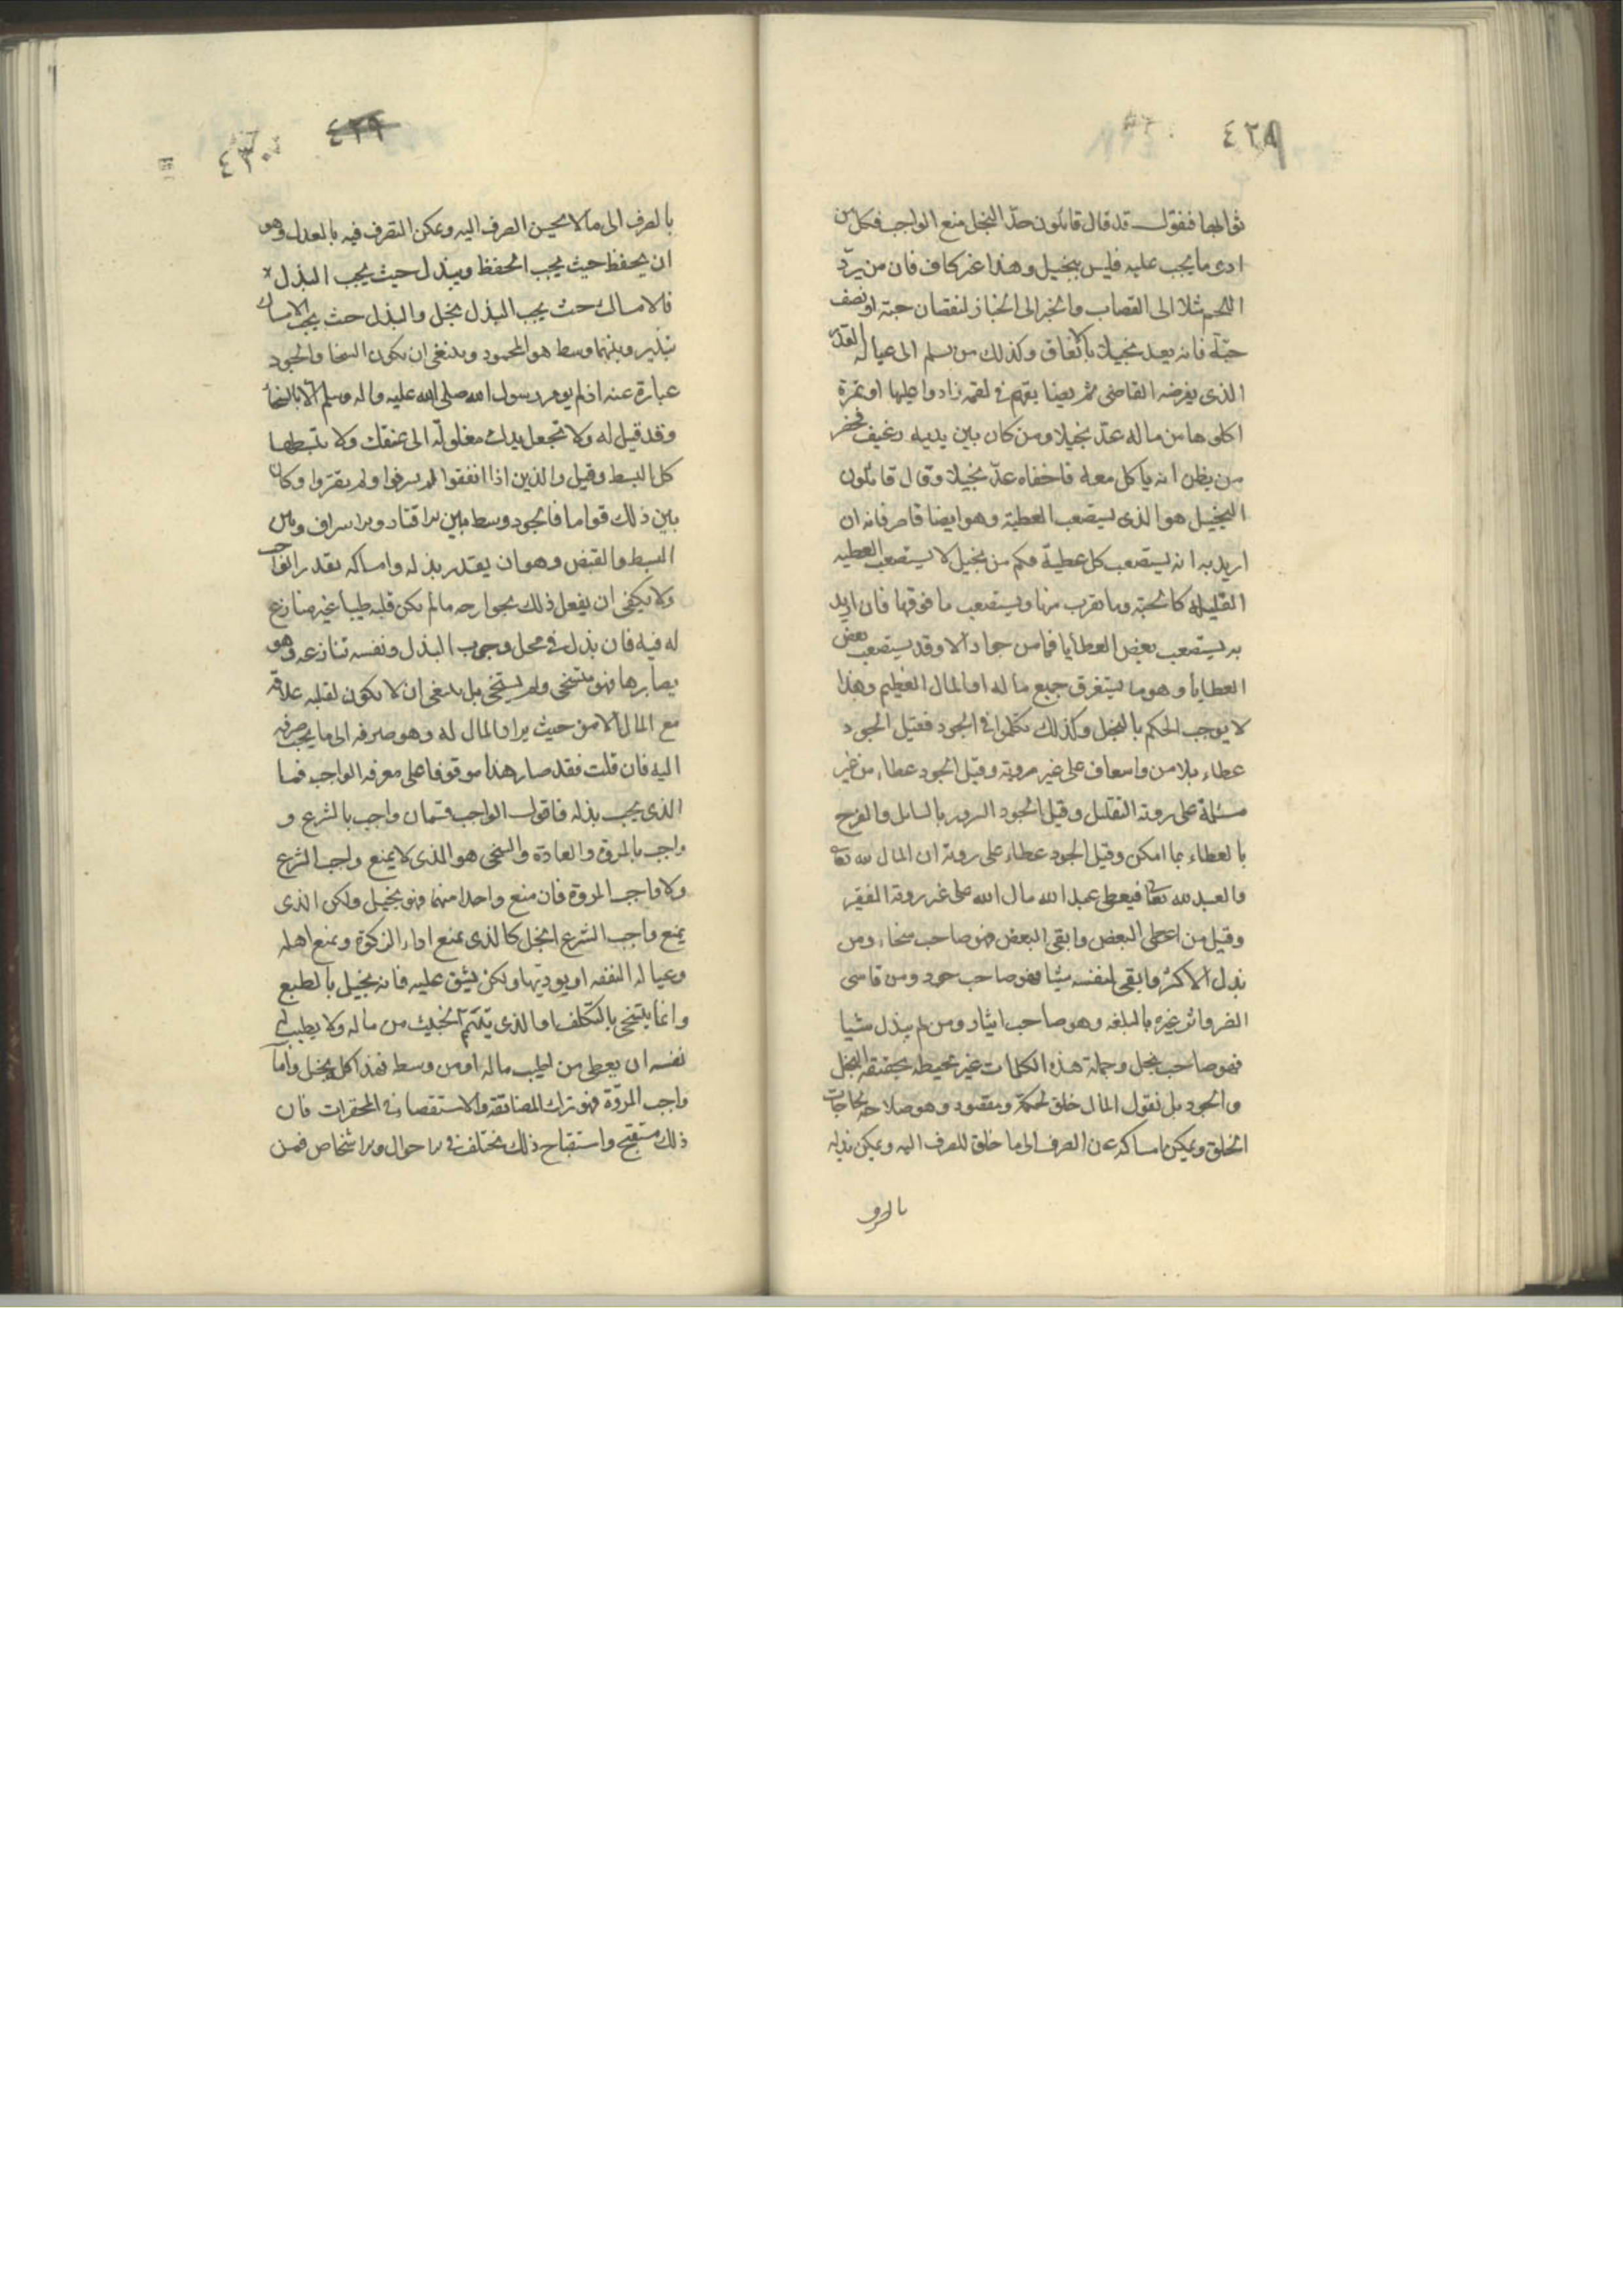 ٤٢٨
ثوابها فنقول قد قال قائلون حدّ البخل منع الواجب فكل من
ادى ما يجب عليه فليس ببخيل وهذا غير كاف فان من يردّ
اللحم مثلا الى القصاب والخبز الى الخباز لنقصان حبة او نصف
حبّة فانه يعد بخيلا بالاتفاق وكذلك من يسلم الى عياله القدر
الذى يفرضه القاضى ثم يضايقهم فى لقمة زادوا عليها او تمرة
اكلوها من ماله عدّ بخيلا ومن كان بين يديه رغيف فحضر
من يظن انه ياكل معه فاخفاه عدّ بخيلا وقال قائلون
البخيل هو الذى يستصعب العطية وهو ايضا قاصر فانه ان
اريد به انه يستصعب كل عطيّة فكم من بخيل لا يستصعب العطيه
القليلة كالحبّة وما يقرب منها ويستصعب ما فوقها فان اريد
به يستصعب بعض العطايا فما من جواد الا وقد يستصعب بعض
العطايا وهو ما يستغرق جميع ماله او المال العظيم وهذا
لا يوجب الحكم بالبخل وكذلك تكلموا فى الجود فقيل الجود
عطاء بلا من واسعاف على غير روية وقيل الجود عطاء من غير
مسئلة على روية التقليل وقيل الجود السرور بالسايل والفرح
بالعطاء بما امكن وقيل الجود عطاء على روية ان المال لله تعا
والعبد لله تعا فيعطى عبد الله مال الله على غير روية الفقير
وقيل من اعطى البعض وابقى البعض فهو صاحب سخاء ومن
بذل الاكثر وابقى لنفسه شيئا فهو صاحب جود ومن قاسى
الضر واثر غيره بالبلغه وهو صاحب ايثار ومن لم يبذل شيئا
فهو صاحب بخل وجملة هذه الكلمات غير محيطه بحقيقة البخل
والجود بل نقول المال خلق لحكمة ومقصود وهو صلاحه لحاجات
الخلق ويمكن امساكه عن الصرف الى ما خلق للصرف اليه ويمكن بذله
بالصرف
٤٢٩
٤٣٠
بالصرف الى ما لا يحسن الصرف اليه ويمكن التصرف فيه بالعدل وهو
ان يحفظ حيث يجب الحفظ ويبذل حيث يجب البذل
فالامساك حيث يجب البذل بخل والبذل حيث يجب الامساك
تبذير وبينهما وسط هو المحمود وينبغى ان يكون السخا والجود
عبارة عنه اذ لم يومر رسول الله صلى الله عليه واله وسلم الا بالسخا
وقد قيل له ولا تجعل يدك مغلولة الى عنقك ولا تبسطها
كل البسط وقيل والذين اذا انفقوا لم يسرفوا ولم يقتروا وكان
بين ذلك قواما فالجود وسط بين الاقتار والاسراف وبين
البسط والقبض وهو ان يقدر بذله وامساكه بقدر الواجب
ولا يكفى ان يفعل ذلك بجوارحه ما لم يكن قلبه طيبا غير منازع
له فيه فان بذل فى محل وجوب البذل ونفسه تنازعه وهو
يصابرها فهو متسخى وليس بسخى بل ينبغى ان لا يكون لقلبه علاقة
مع المال الا من حيث يراد المال له وهو صرفه الى ما يجب صرفه
اليه فان قلت فقد صار هذا موقوفا على معرفه الواجب فما
الذى يجب بذله فاقول الواجب قسمان واجب بالشرع و
واجب بالمروة والعادة والسخى هو الذى لا يمنع واجب الشرع
ولا واجب المروة فان منع واحدا منهما فهو بخيل ولكن الذى
يمنع واجب الشرع ابخل كالذى يمنع اداء الزكوة ويمنع اهله
وعياله النفقه او يوديها ولكن يشق عليه فانه بخيل بالطبع
وانما يتسخى بالتكلف او الذى يتيمّم الخبيث من ماله ولا يطيب له
نفسه ان يعطى من اطيب ماله او من وسطه فهذا كله بخل واما
واجب المروّة فهو ترك المضائقة والاستقصا فى المحقرات فان
ذلك مستقبح واستقباح ذلك يختلف فى الاحوال والاشخاص فمن